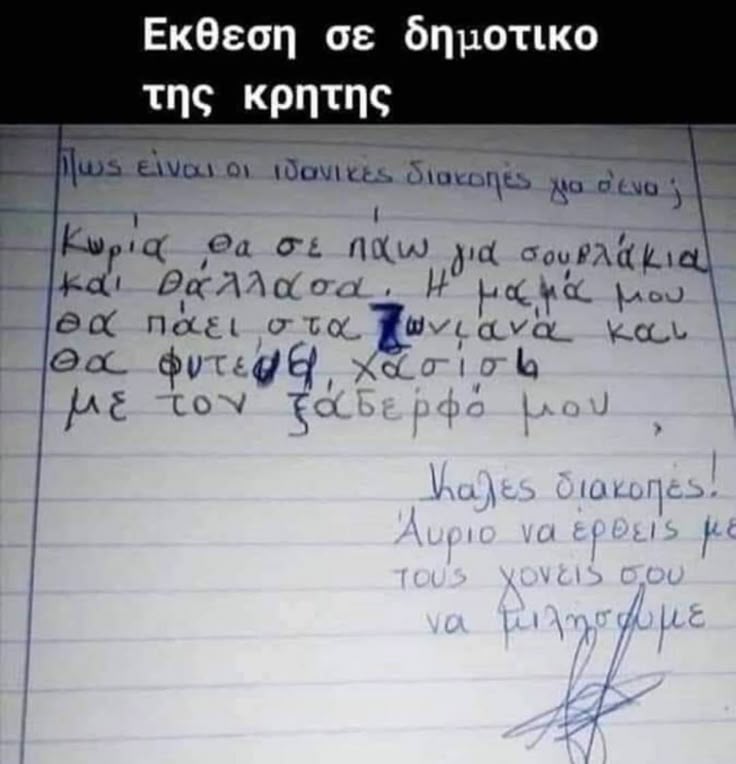 Εκθεση σε δημοτικο
της κρητης
Πως είναι οι ιδανικές διακοπές για σένα;
Κωρία θα σε πάω για σουβλάκια
και θάλλασα. Η μαμά μου
θα πάει στα Ζωνιανά και
θα φυτέψει χασίσι
με τον ξάδερφό μου
Καλές διακοπές!
Άυριο να έρθεις με
τους γονείς σου
να μιλήσουμε